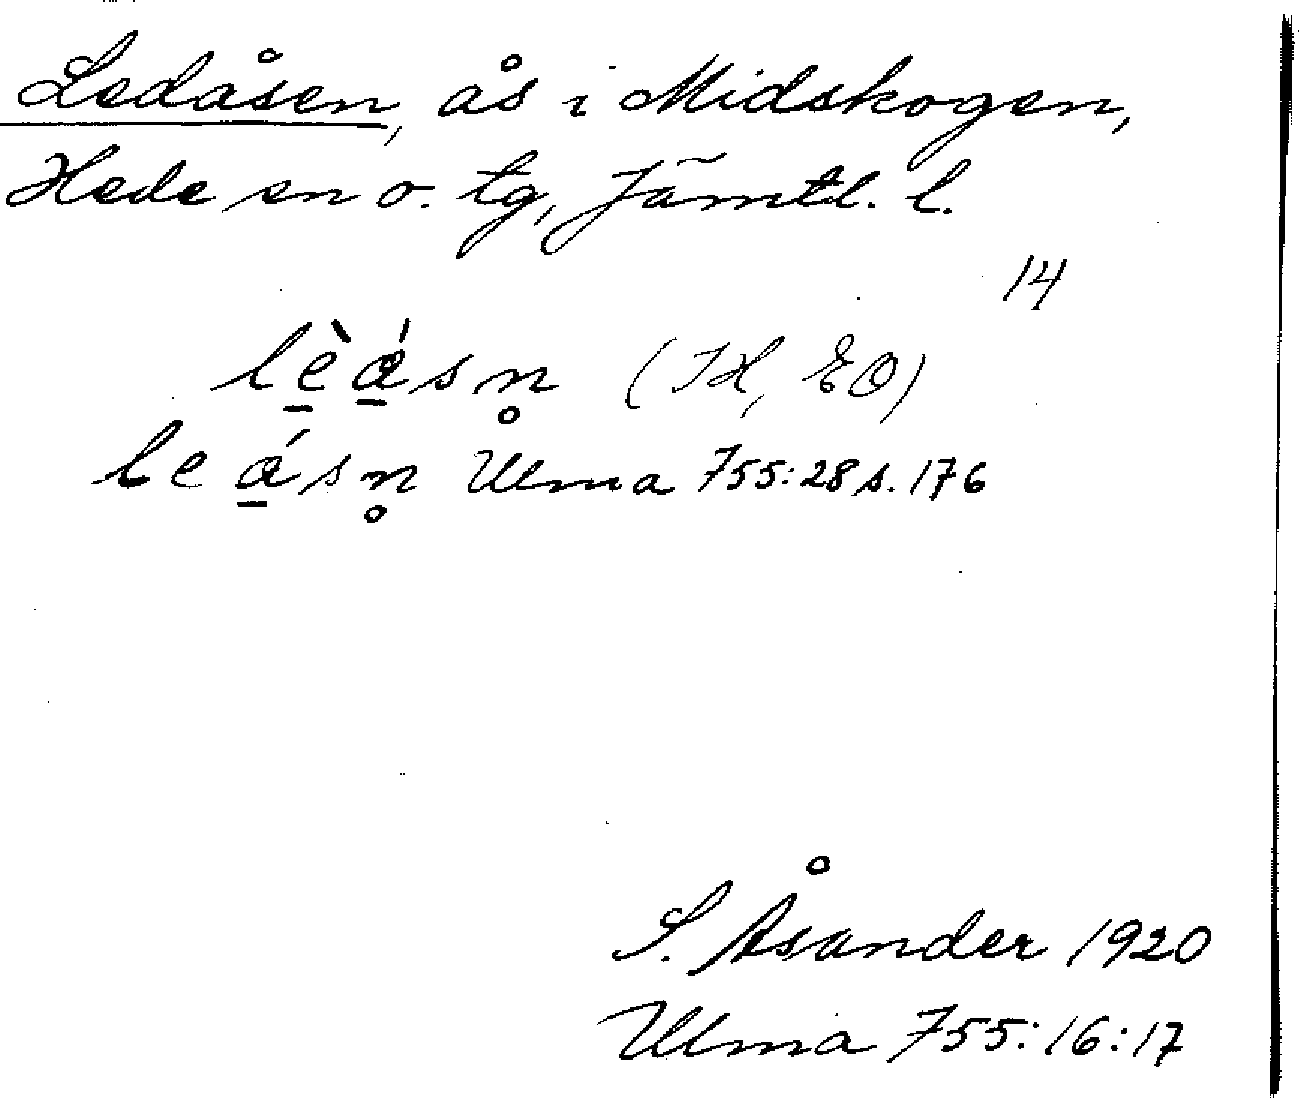 Ledåsen, ås i Midskogen,
Hede sn o. tg, Jämtl. l.
14
lè̱á̱sn̥ (JH, EO)
leá̱sn̥ Ulma 755:28 s. 176
S. Åsander 1920
Ulma 755:16:17